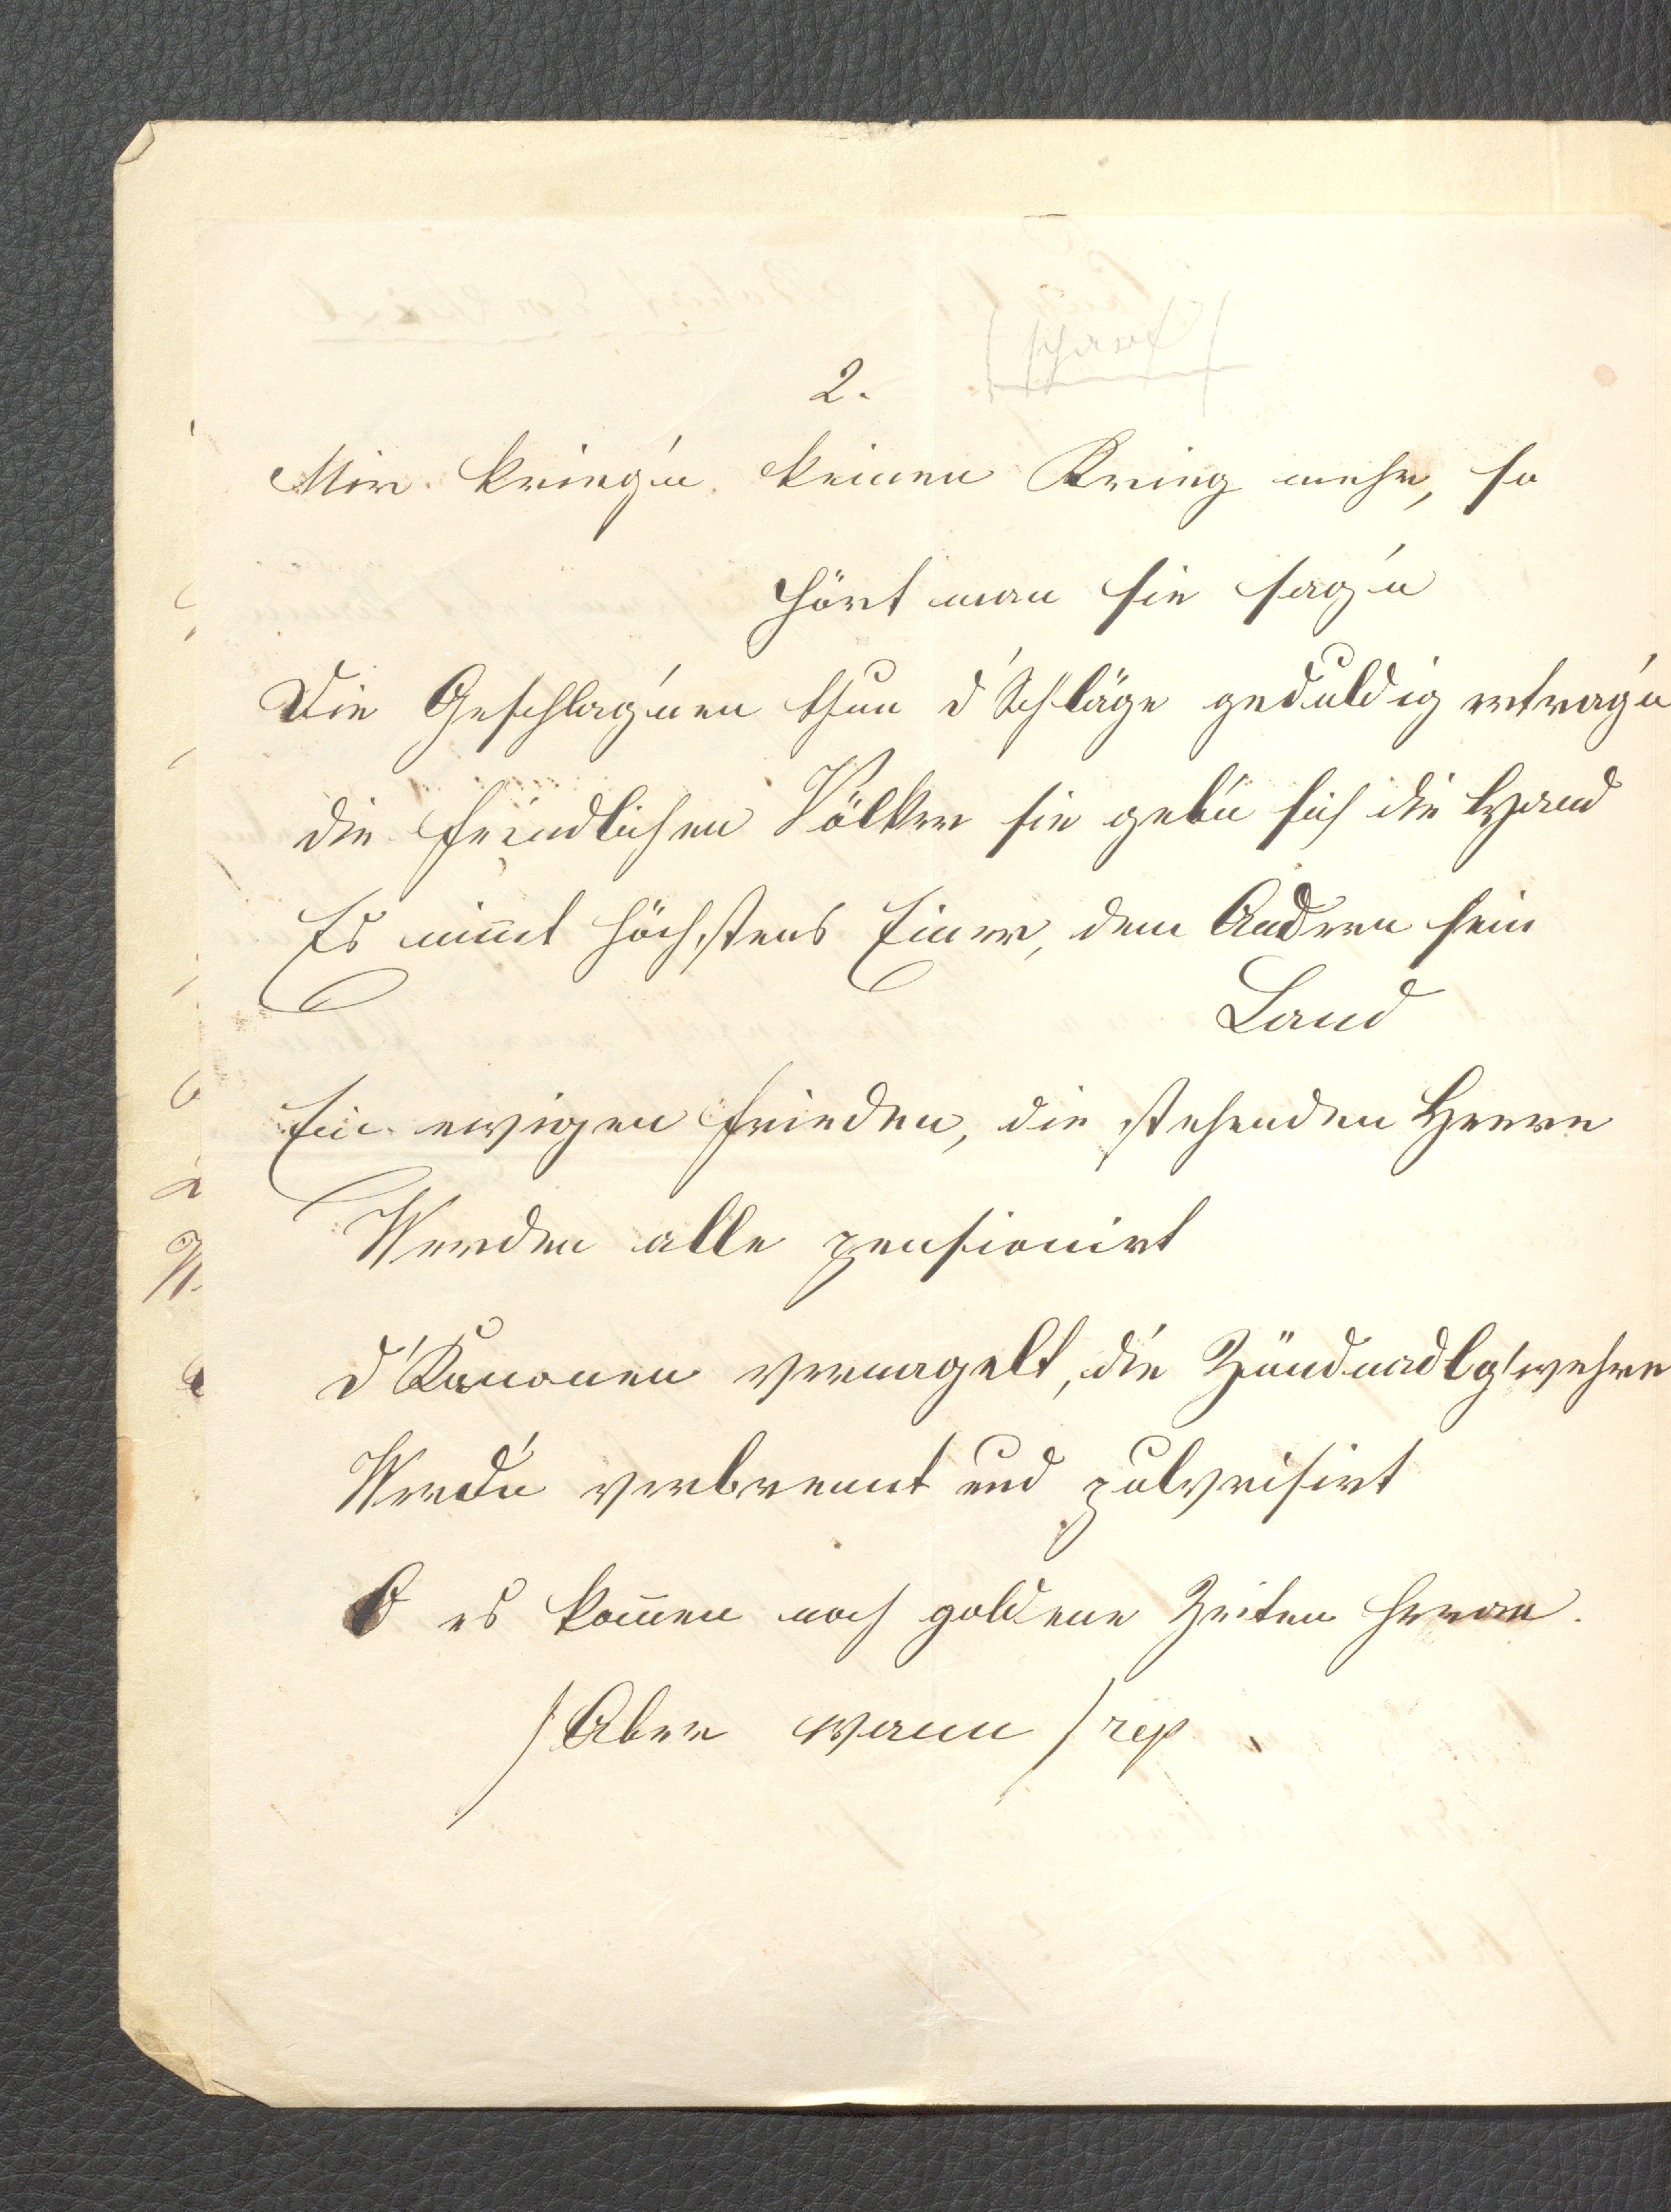 2.
Mir krieg'n keinen Krieg mehr, so
hört man sie sag'n
Die Geschlag'nen thun d'Schläge geduldig ertrag'n
die feindlichen Völker sie geb'n sich die Hand
Es nim̅t höchstens Einer, dem Andern sein
Land
Ein ewigen Frieden, die stehenden Heere
Werden alle pensionirt
d'Kanonen vernagelt, die Zündnadlg'wehre
Werd'n verbrennt und pulverisirt
O es kom̅en noch goldene Zeiten heran.
/ Aber wann / rep